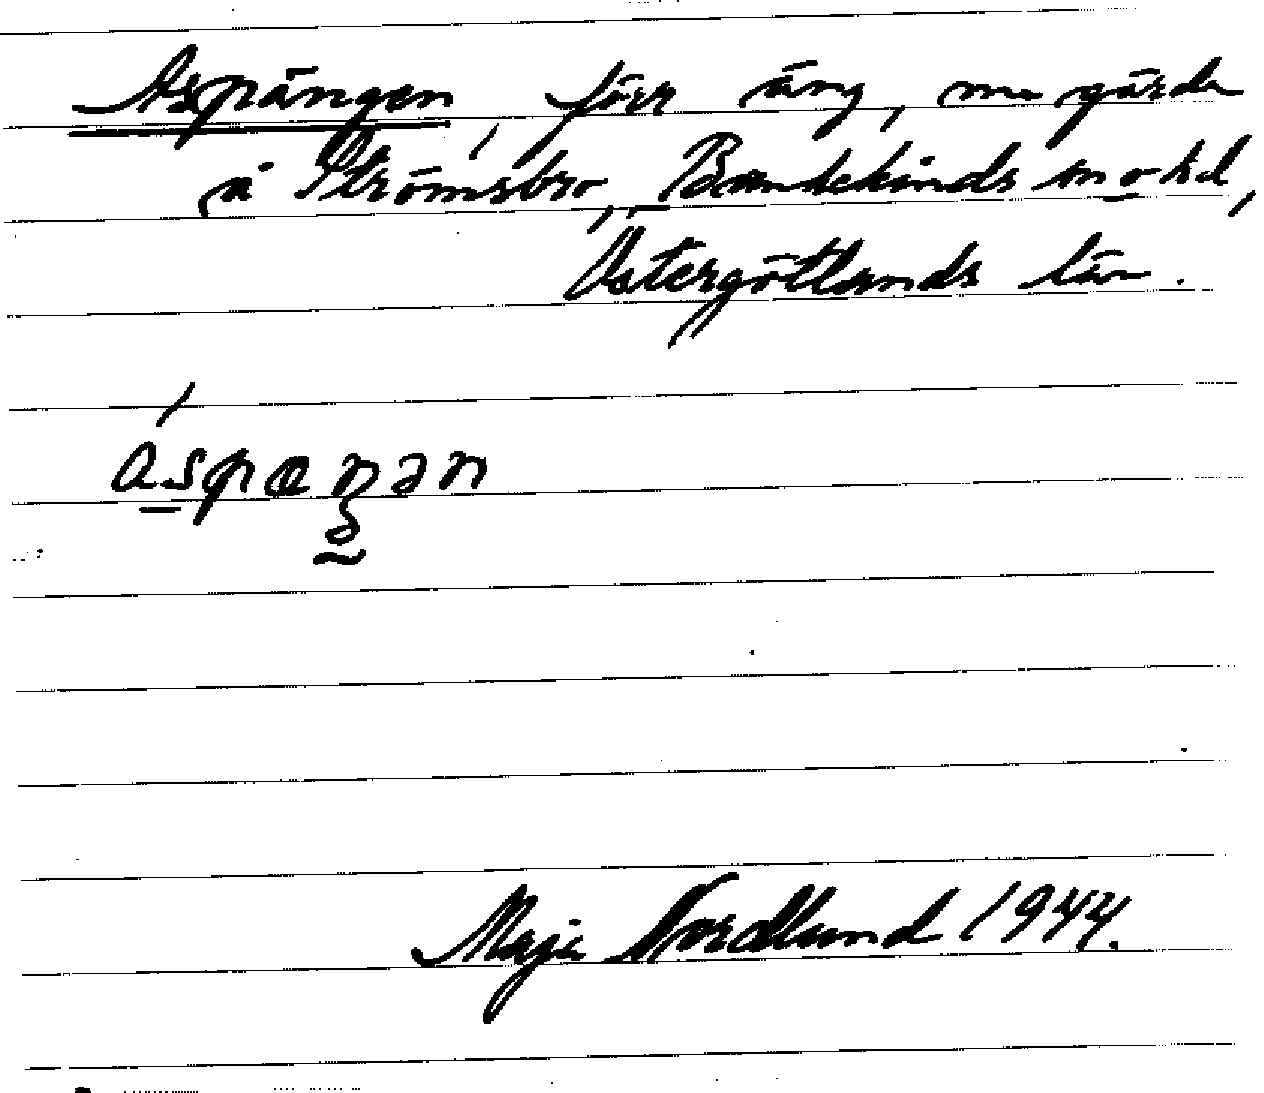 Aspängen, förr äng, nu gärde
å Strömsbro, Bankekinds sn o hd,
Östergötlands län.
áspæŋən
Maja Nordlund 1944.